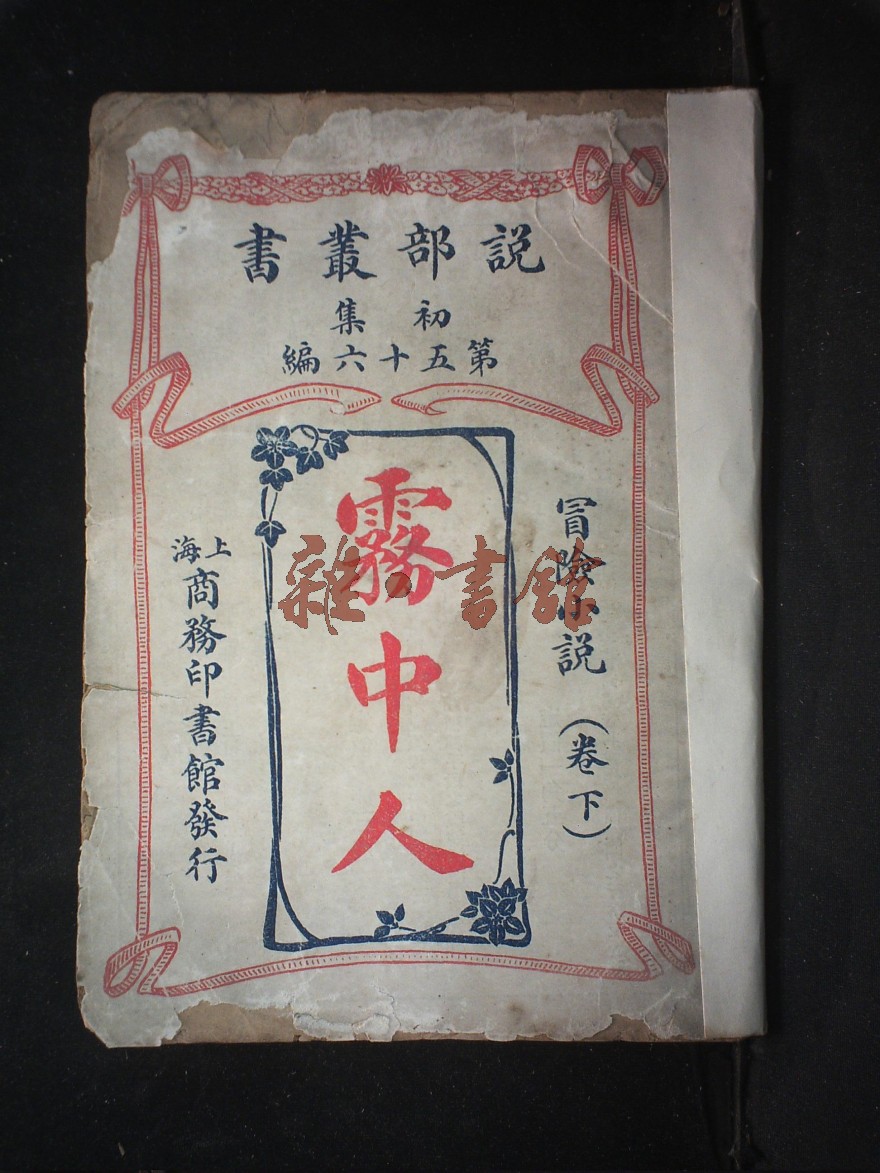 説部叢書
初集
第五十六編
冒險小説(卷下)
霧中人
上海
商務印書館發行
雜·書館